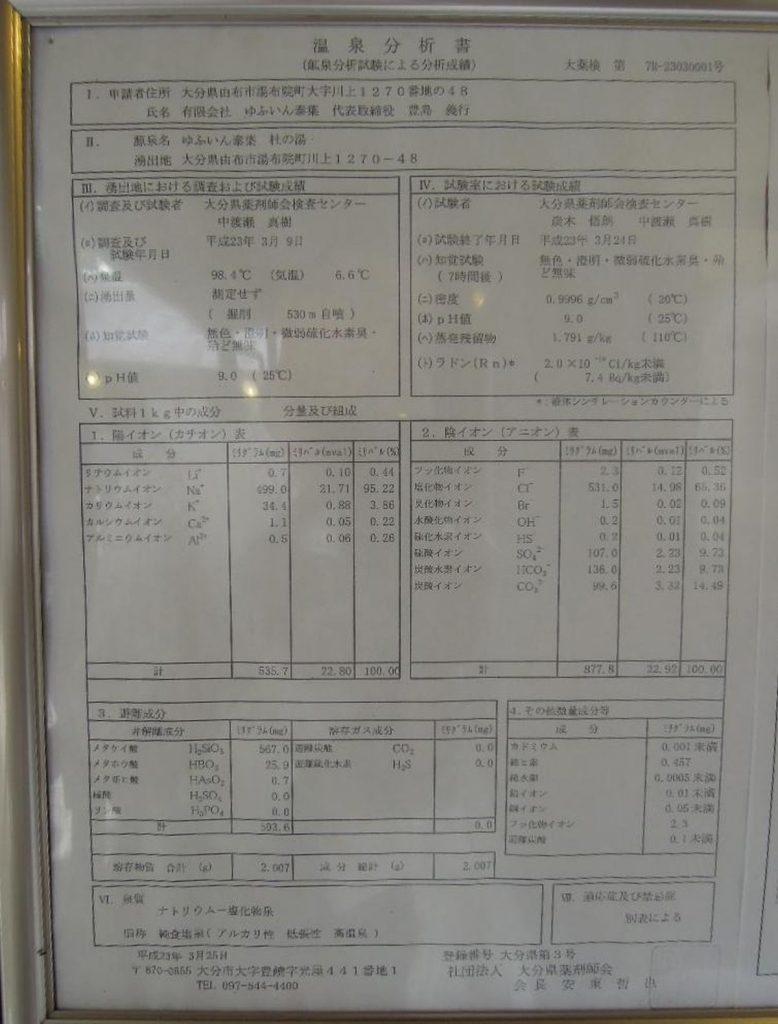 温泉分析書
(鉱泉分析試験による分析成績)
大薬検 第 7R-23030001号
I. 申請者住所 大分県由布市湯布院町大字川上1270番地の48
氏名 有限会社 ゆふいん泰葉 代表取締役 豊島 義行
II. 源泉名 ゆふいん泰葉 杜の湯
湧出地 大分県由布市湯布院町川上1270-48
III. 湧出地における調査および試験成績
(イ)調査及び試験者 大分県薬剤師会検査センター
中渡瀬 真樹
(ロ)調査及び試験年月日 平成23年 3月 9日
(ハ)泉温 98.4℃ (気温) 6.6℃
(ニ)湧出量 測定せず
( 掘削 530m自噴 )
(ホ)知覚試験 無色・澄明・微弱硫化水素臭・
殆ど無味
(ヘ)pH値 9.0 (25℃)
IV. 試験室における試験成績
(イ)試験者 大分県薬剤師会検査センター
悟朗 中渡瀬 真樹
(ロ)試験終了年月日 平成23年 3月24日
(ハ)知覚試験 無色・澄明・微弱硫化水素臭・殆
( 7時間後 ) ど無味
(ニ)密度 0.9996 g/cm³ ( 20℃)
(ホ)pH値 9.0 ( 25℃)
(ヘ)蒸発残留物 1.791 g/kg ( 110℃)
(ト)ラドン(Rn)* 2.0×10⁻¹⁰Ci/kg未満
( 7.4 Bq/kg未満)
*:液体シンチレーションカウンターによる
V. 試料1kg中の成分 分量及び組成
1. 陽イオン(カチオン)表
成 分 ミリグラム(mg) ミリバル(mval) ミリバル(%)
リチウムイオン Li⁺ 0.7 0.10 0.44
ナトリウムイオン Na⁺ 499.0 21.71 95.22
カリウムイオン K⁺ 34.4 0.88 3.86
カルシウムイオン Ca²⁺ 1.1 0.05 0.22
アルミニウムイオン Al³⁺ 0.5 0.06 0.26
計 535.7 22.80 100.00
2. 陰イオン(アニオン)表
成 分 ミリグラム(mg) ミリバル(mval) ミリバル(%)
フッ化物イオン F⁻ 2.3 0.12 0.52
塩化物イオン Cl⁻ 531.0 14.98 65.36
臭化物イオン Br 1.5 0.02 0.09
水酸化物イオン OH⁻ 0.2 0.01 0.04
硫化水素イオン HS 0.2 0.01 0.04
硫酸イオン SO₄²⁻ 107.0 2.23 9.73
炭酸水素イオン HCO₃⁻ 136.0 2.23 9.73
炭酸イオン CO₃²⁻ 99.6 3.32 14.49
計 877.8 22.92 100.00
3. 遊離成分
非解離成分 ミリグラム(mg) 溶存ガス成分 ミリグラム(mg)
メタケイ酸 H₂SiO₃ 567.0 遊離炭酸 CO₂ 0.0
メタホウ酸 HBO₂ 25.9 遊離硫化水素 H₂S 0.0
メタ亜ヒ酸 HAsO₂ 0.7
硫酸 H₂SO₄ 0.0
リン酸 H₃PO₄ 0.0
計 593.6 0.0
溶存物質 合計 (g) 2.007 成分 総計 (g) 2.007
4. その他微量成分等
成 分 ミリグラム(mg)
カドミウム 0.001 未満
総ヒ素 0.457
総水銀 0.0005 未満
鉛イオン 0.01 未満
銅イオン 0.05 未満
フッ化物イオン 2.3
遊離炭酸 0.1 未満
VI. 泉質
ナトリウム-塩化物泉
旧称 純食塩泉(アルカリ性 低張性 高温泉)
VII. 適応症及び禁忌症
別表による
平成23年 3月25日
〒870-0855 大分市大字豊饒字光屋441番地1
TEL 097-544-4400
登録番号 大分県第3号
社団法人 大分県薬剤師会
会長 安東哲也